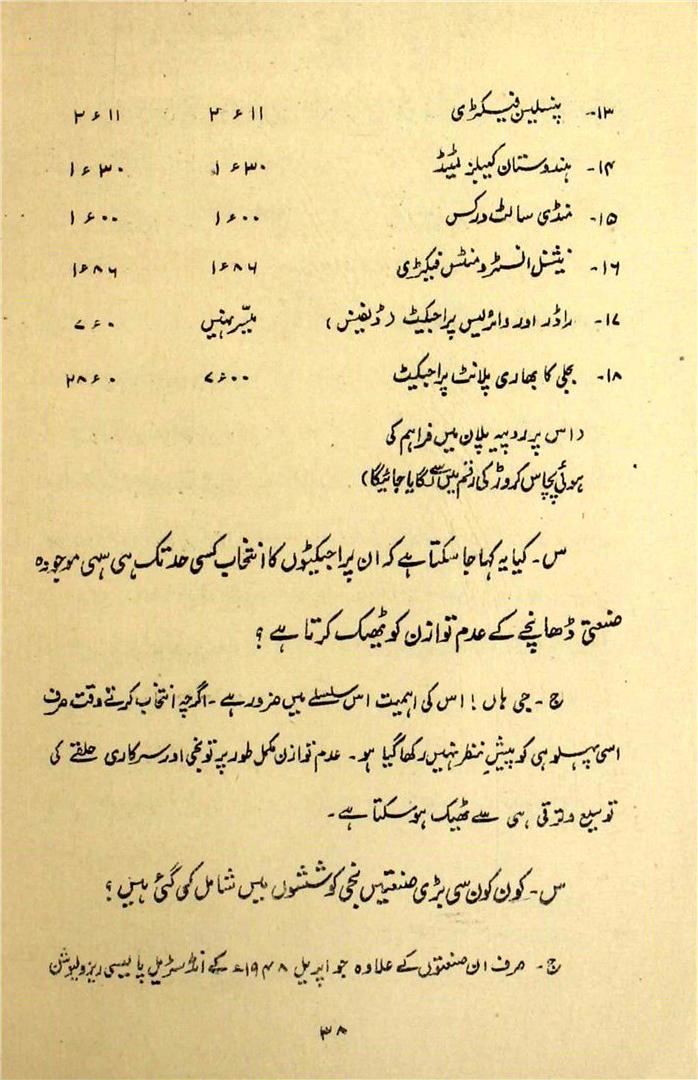 ۱۳- پنسلین فیکڑی ۲ ء ۱۱ ۲ ء ۱۱
۱۴- ہندوستان کیبلز لمیٹڈ ۱ ء ۳۰ ۱ ء ۳۰
۱۵- منڈی سالٹ ورکس ۱ ء ۰۰ ۱ ء ۰۰
۱۶- نیشنل انسٹرومنٹس فیکڑی ۱ ء ۸۶ ۱ ء ۸۶
۱۷- راڈر اور وائرلیس پراجیکٹ (ڈیفینس) میسّر نہیں ۷ ء ۰
۱۸- بجلی کا بھاری پلانٹ پراجیکٹ ۷ ء ۰۰ ۲۸ ء ۰
(اس پر روپیہ پلان میں فراہم کی
ہوئی پچاس کروڑ کی رقم میں سے لگایا جائیگا)
س- کیا یہ کہا جا سکتا ہے کہ ان پراجیکٹوں کا انتخاب کسی حد تک ہی سہی موجودہ
صنعتی ڈھانچے کے عدم توازن کو ٹھیک کرتا ہے ؟
ج- جی ہاں! اس کی اہمیت اس سلسلے میں ضرور ہے- اگرچہ انتخاب کرتے وقت صرف
اسی پہلو ہی کو پیشِ نظر نہیں رکھا گیا ہو- عدم توازن مکمل طور پر تو نجی اور سرکاری حلقے کی
توسیع و ترقی ہی سے ٹھیک ہو سکتا ہے-
س- کون کون سی بڑی صنعتیں نجی کوششوں میں شامل کی گئی ہیں ؟
ج- صرف ان صنعتوں کے علاوہ جو اپریل ۱۹۴۸ء کے انڈسٹریل پالیسی ریزولیوشن
۳۸